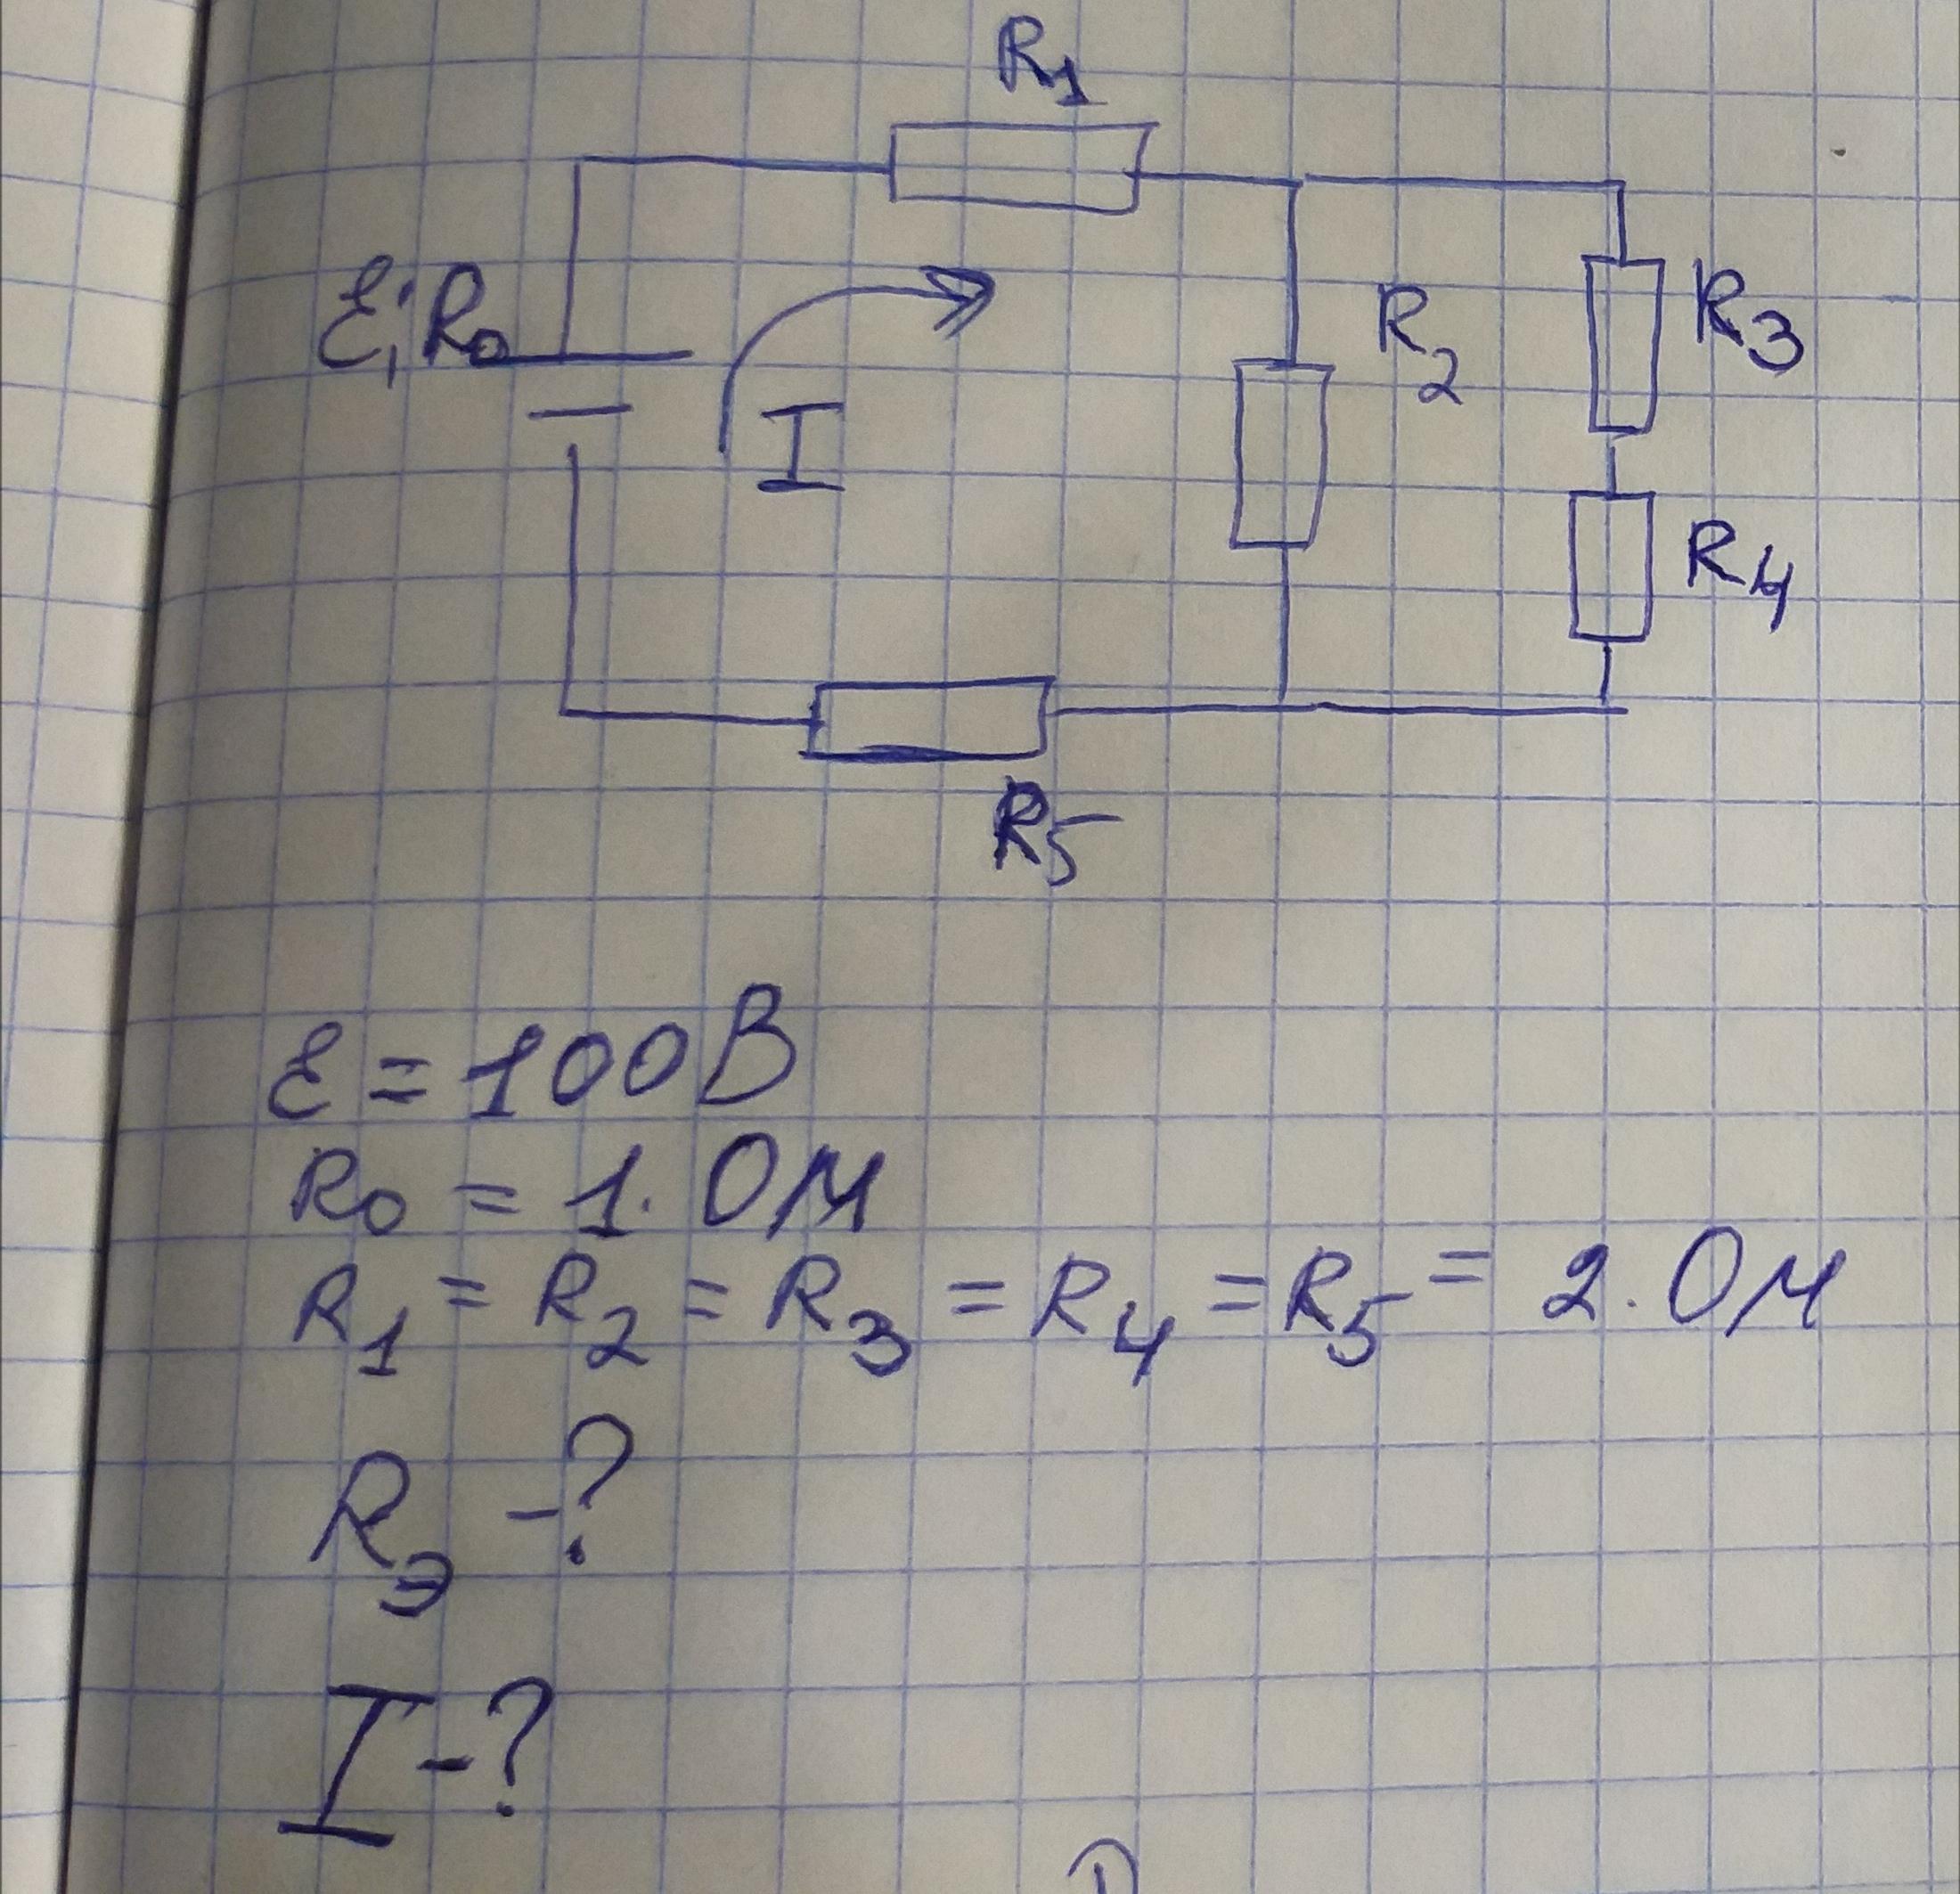 R₁
ℰ; R₀
I
R₂
R₃
R₄
R₅
ℰ = 100В
R₀ = 1. Ом
R₁ = R₂ = R₃ = R₄ = R₅ = 2. Ом
Rэ -?
I -?